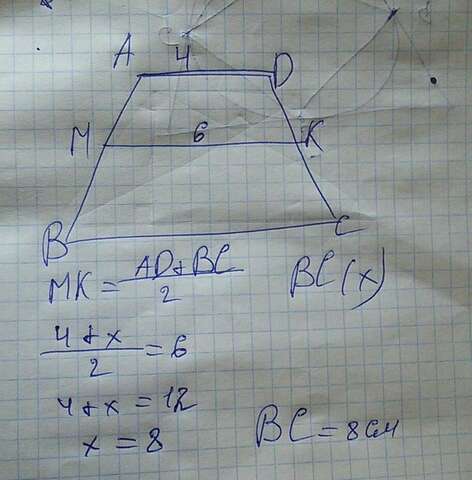 4
A D
M 6 K
B C
MK = AD+BC / 2 BC(x)
4+x / 2 = 6
4+x = 12
x = 8 BC = 8см